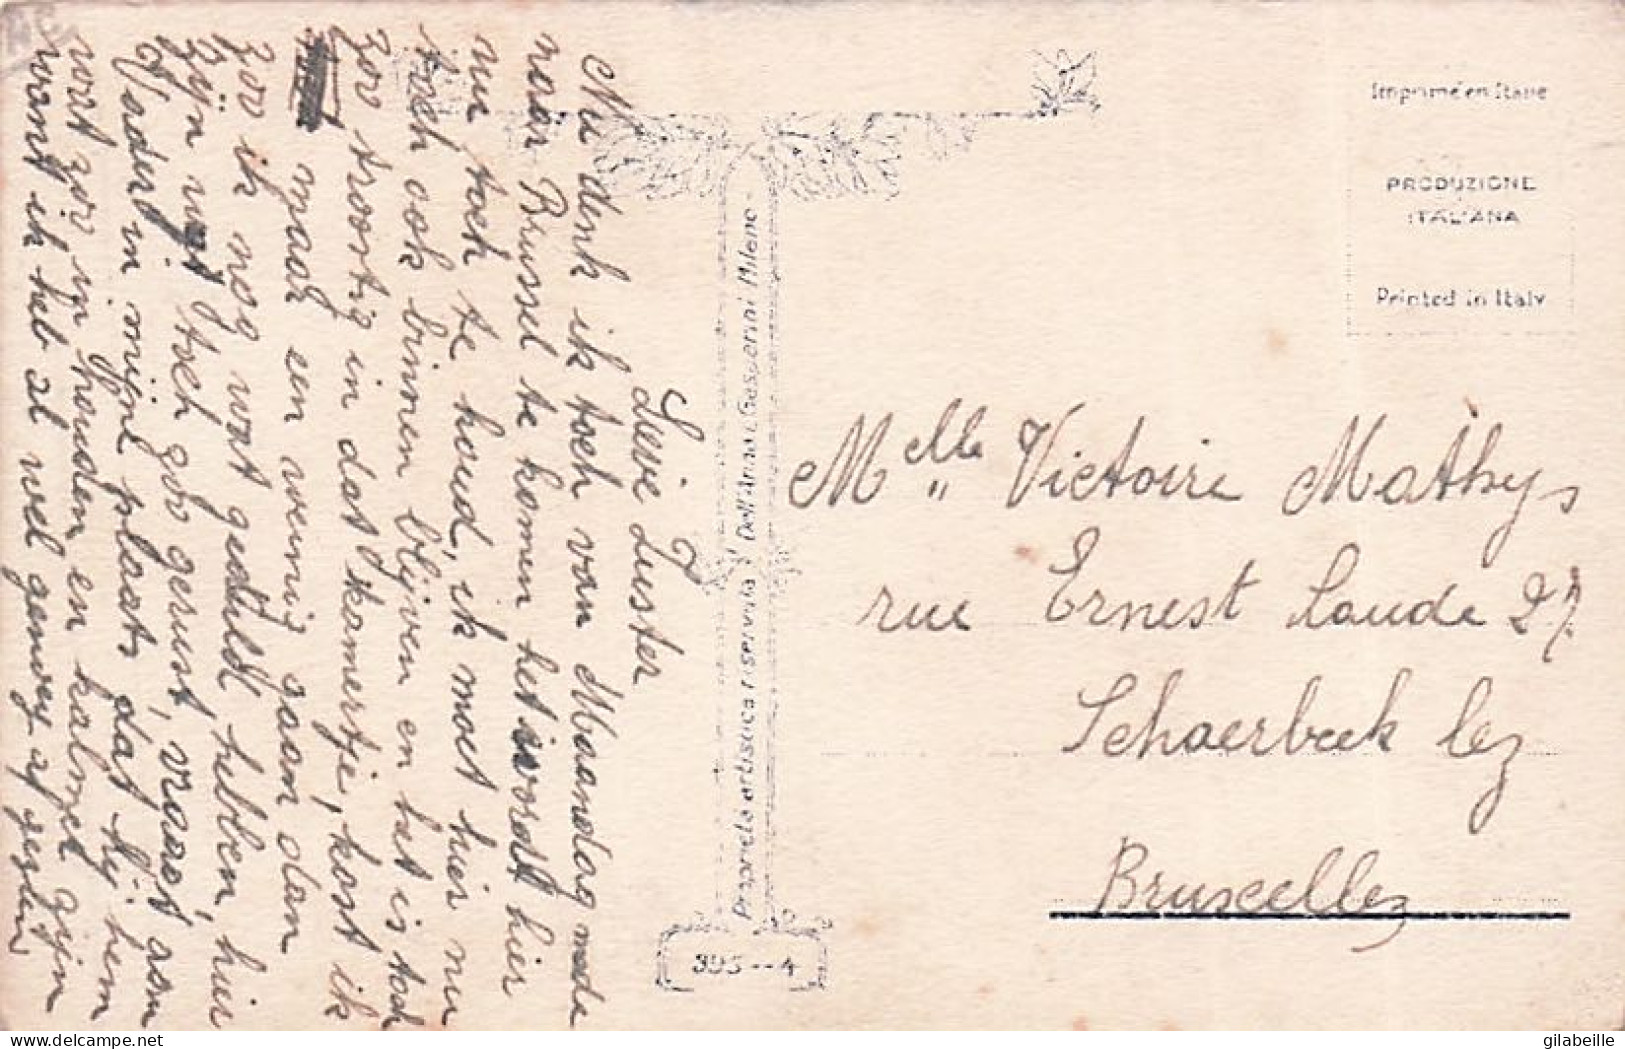 Lieve Zuster
Nu denk ik toch van Maandag mede
naar Brussel te komen het wordt hier
nu toch te koud, ik moet hier nu
toch ook binnen blijven en het is toch
zoo troortig in dat kamertje, kost ik
maar een weinig gaan dan
zoo ik nog wat geduld hebben, hier
zijn niet toch goo gerust, vraagt aan
Vader in mijne plaats dat hij hem
wat zoo in houden en kalmer zijn
want ik heb al wel genoeg af gezien
Melle Victoire Mathys
rue Ernest Laude 27
Schaerbeek lez
Bruxelles
Imprimé en Italie
PRODUZIONE
ITALIANA
Printed in Italy
Proprietà artistica riservata Dell'Anna e Gasperini Milano
395--4
gilabeille